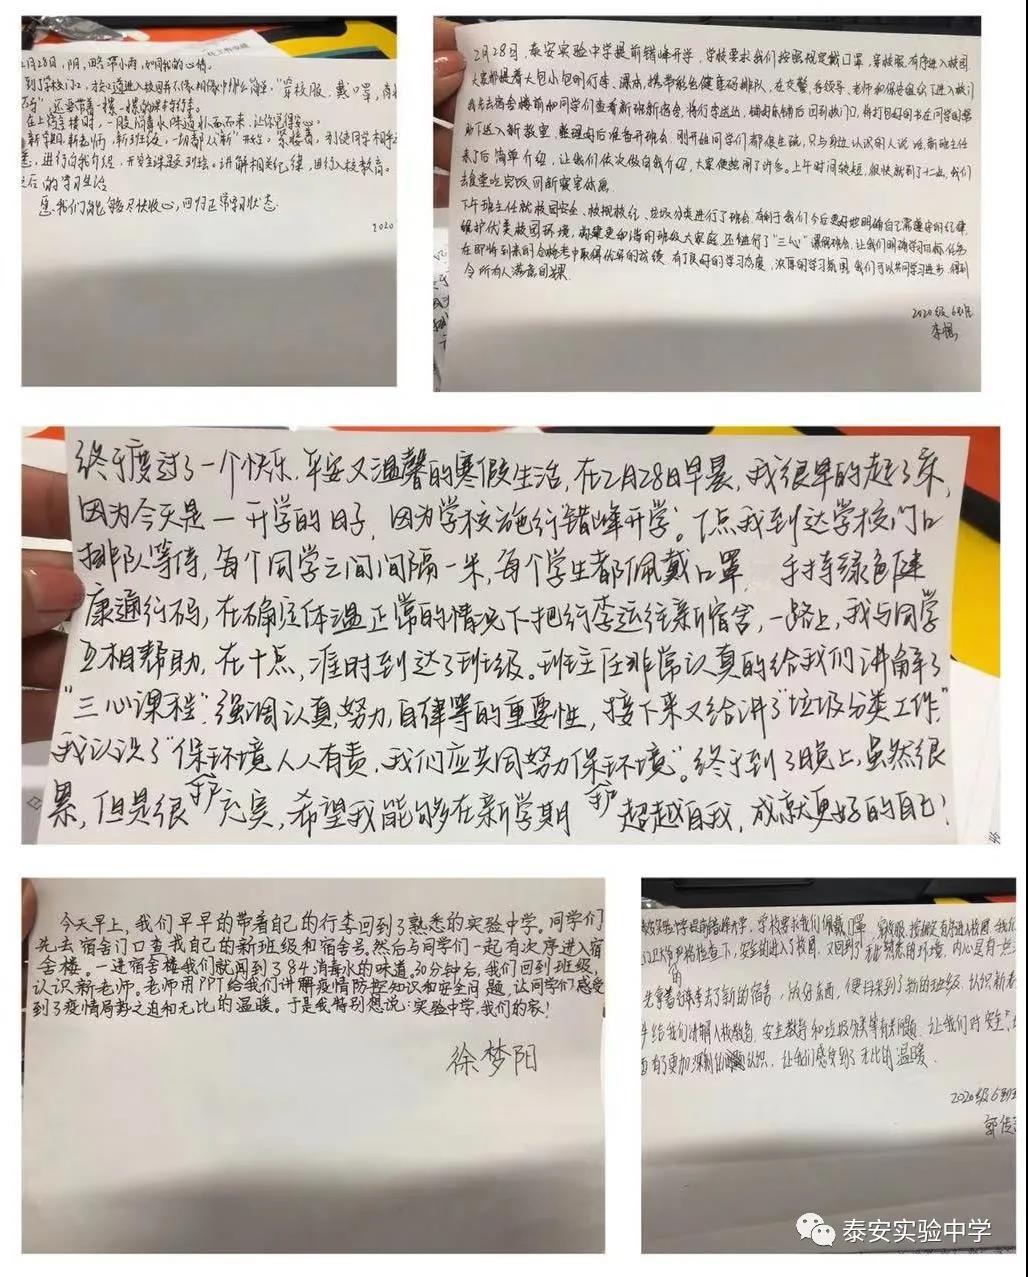 2月28日,阴,时常带小雨,如同我的心情。
到了学校门口,
"穿校服,戴口罩,
还要带着一摞一摞的课本行李。
一股消毒水味道扑面而来,让你觉得安心。
新学期,新老师,新到班级,一切都从"新"开始。紧接着,
进行自我介绍,
的学习生活
愿我们能够尽快收心,回归正常学习状态
2020
2月28日,泰安实验中学提前错峰开学,学校要求我们按照规定戴口罩,穿校服,有序进入校园
大家都提着大包小包的行李、课本,携带绿色健康码排队,在交警、各领导、老师和保安组织下进入校门
我先去宿舍楼前和同学们查看新班新宿舍,将行李送达,铺好床铺后回到校门口,将打包好的书在同学的帮
助下送入新教室,整理阅后准备开班会,刚开始同学们都很生疏,只与身边认识的人说话,新班主任
来了后简单介绍,让我们依次做自我介绍,大家便热闹了许多。上午时间较短,很快就到了十二点,我们
去食堂吃完饭回新寝室休息
下午班主任就校园安全、校规校纪、垃圾分类进行了班会,有利于我们今后更好地明确自己需遵守的纪律
维护优美校园环境,构建更和谐的班级大家庭,还进行了"三心"课程班会,让我们明确学习目标,任务
在即将到来的合格考中取得优异的成绩,有了良好的学习态度,浓厚的学习氛围,我们可以共同学习进步,得到
令所有人满意的结果
2020级6班
终于度过了一个快乐,平安又温馨的寒假生活,在2月28日早晨,我很早的起了床,
因为今天是一开学的日子,因为学校施行"错峰开学"。7点我到达学校门口
排队等待,每个同学之间间隔一米,每个学生都佩戴口罩,手持绿色健
康通行码,在确定体温正常的情况下把行李运往新宿舍,一路上,我与同学
互相帮助,在十点,准时到达了班级。班主任非常认真的给我们讲解了
"三心课程",强调认真,努力,自律等的重要性,接下来又给讲了"垃圾分类工作",
我认识了"保护环境人人有责,我们应共同努力保护环境"。终于到了晚上,虽然很
累,但是很充实,希望我能够在新学期超越自我,成就更好的自己!
今天早上,我们早早的带着自己的行李回到了熟悉的实验中学。同学们
先去宿舍门口查找自己的新班级和宿舍号,然后与同学们一起有次序进入宿
舍楼。一进宿舍楼我们就闻到了84消毒水的味道。30分钟后,我们回到班级,
认识新老师。老师用PPT给我们讲解疫情防控知识和安全问题,让同学们感受
到了疫情局势之迫和无比的温暖。于是我特别想说:实验中学,我们的家!
徐梦阳
实验中学提前错峰开学,学校要求我们佩戴口罩,穿校服,按规定有序进入校园,我们
检查下,安全的进入了校园,又回到了无比熟悉的环境,内心是有一点
先拿着行李去了新的宿舍,放好东西,便回来到了新的班级,认识新老
给我们讲解入校教育,安全教育和垃圾分类等有关问题,让我们对"安全",
有了更加深刻的认识,让我们感受到了无比的温暖。
2020级6班
泰安实验中学